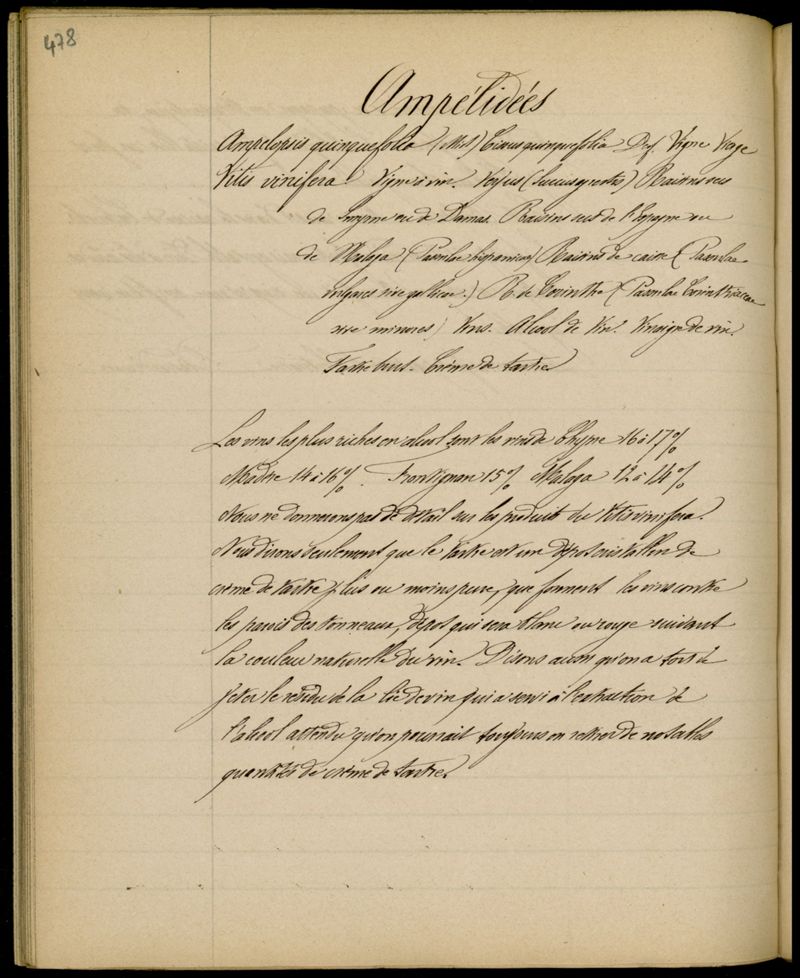 478
Ampélidées
Ampelopsis quinquefolia (Mich) Cissus quinquefolia Desf. Vigne Vierge
Vitis vinifera. Vigne à vin. Verjus (Succus agrestae) Raisins secs
de Smyrne ou de Damas. Raisins secs de l'Espagne ou
de Malaga (Passulae hispanicae) Raisins de caisse (Passulae
vulgares sive gallicae.) R. de Corinthe (Passulae Corinthiacae
sive minores) Vins. Alcool de Vin. Vinaigre de vin.
Tartre brut. Crème de tartre
Les vins les plus riches en alcool sont les vins de Chypre 16 à 17 %
Madère 14 à 16 %. Frontignan 15 % Malaga 12 à 14 %
Nous ne donnerons pas de détail sur les produits du Vitis vinifera.
Nous dirons seulement que le tartre est un dépot cristallin de
crème de tartre plus ou moins pure, que forment les vins contre
les parois des tonneaux, dépot qui sera blanc ou rouge suivant
la couleur naturelle du vin. Disons aussi qu'on a tort de
jeter le résidu de la lie de vin qui a servi à l'extraction de
l'alcool attendu qu'on pourrait toujours en retirer de notables
quantités de crème de tartre.